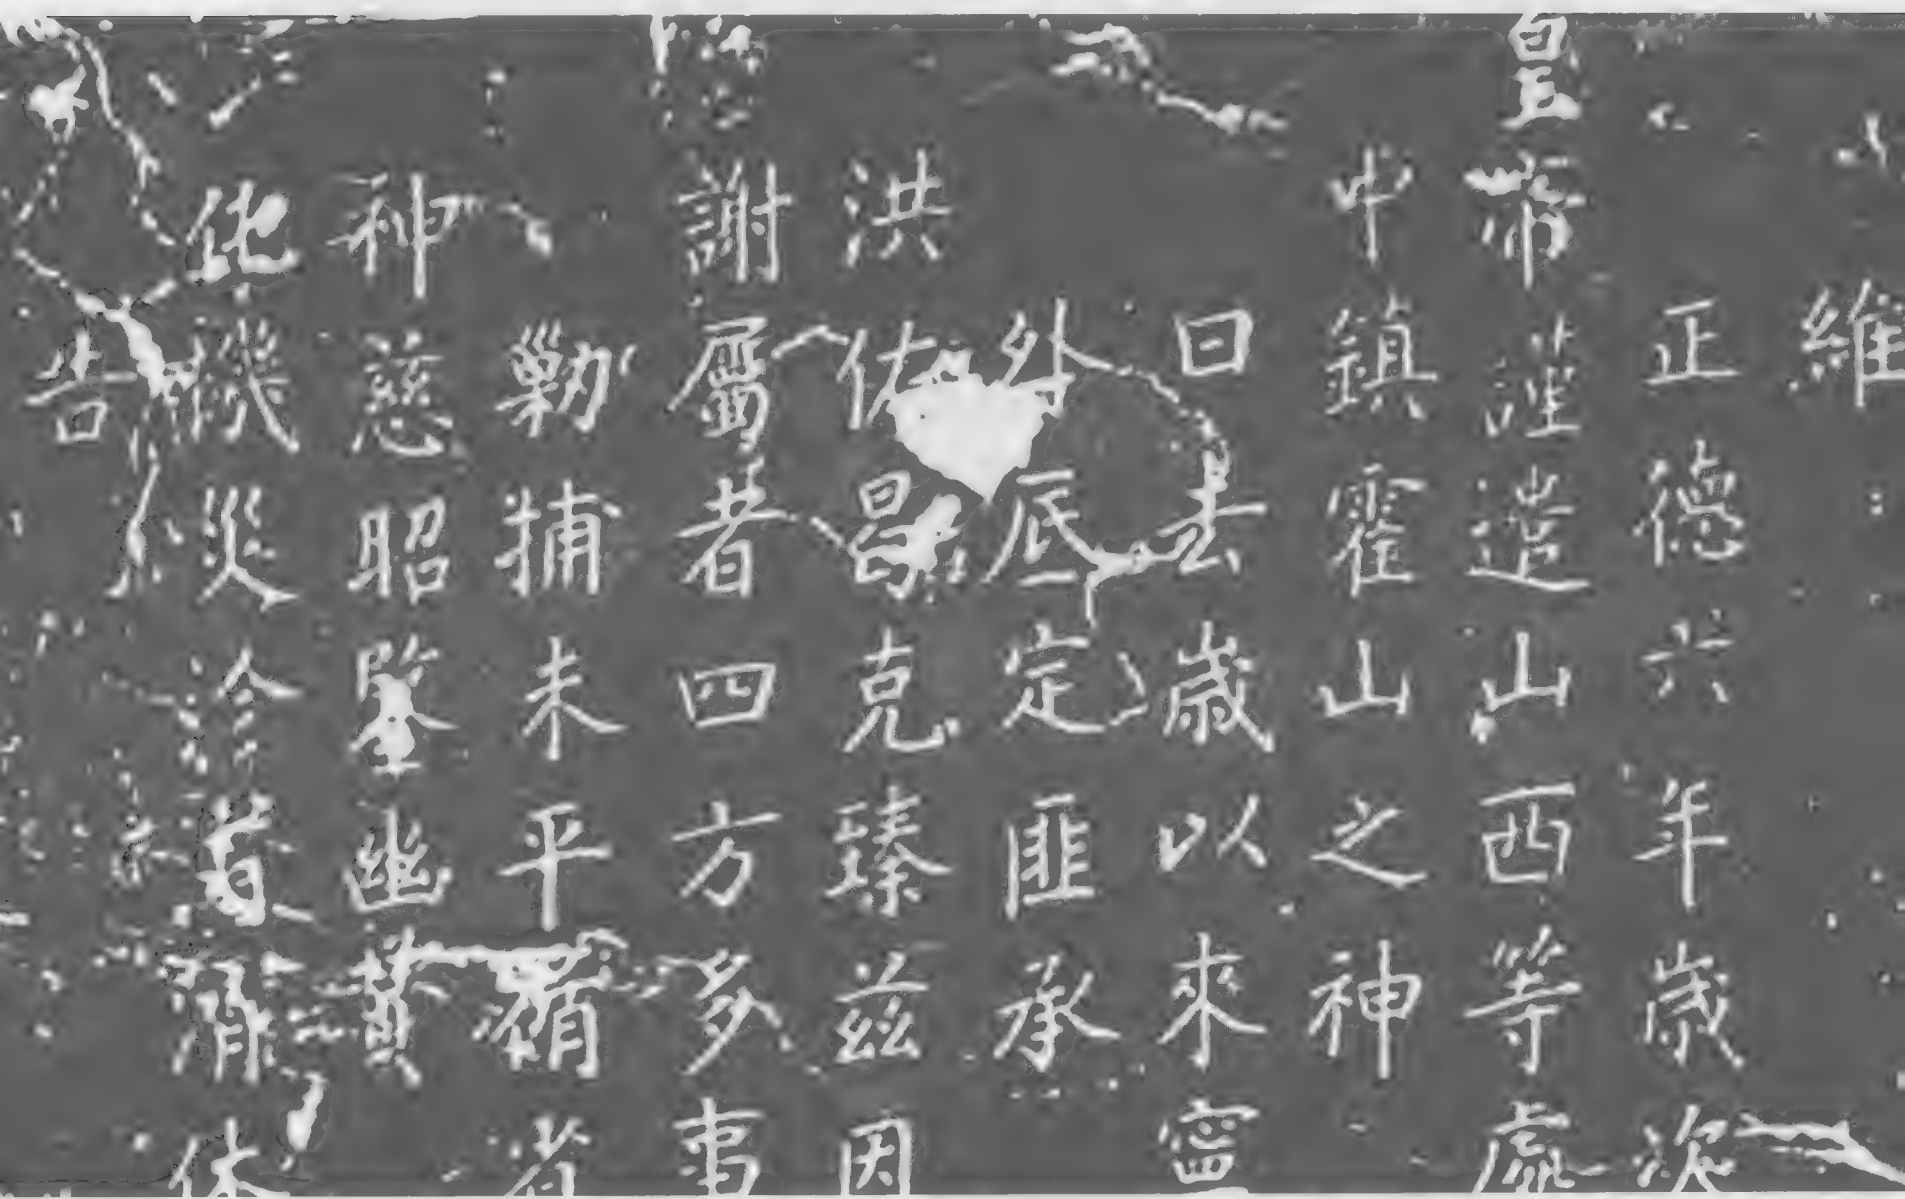 維
正德六年歲次
皇帝謹遣山西等處
中鎮霍山之神
曰去歲以來寧
外底定匪承
洪佑曷克臻茲因
謝屬者四方多事
勦捕未平
神慈昭鑒幽贊
化機災沴
告